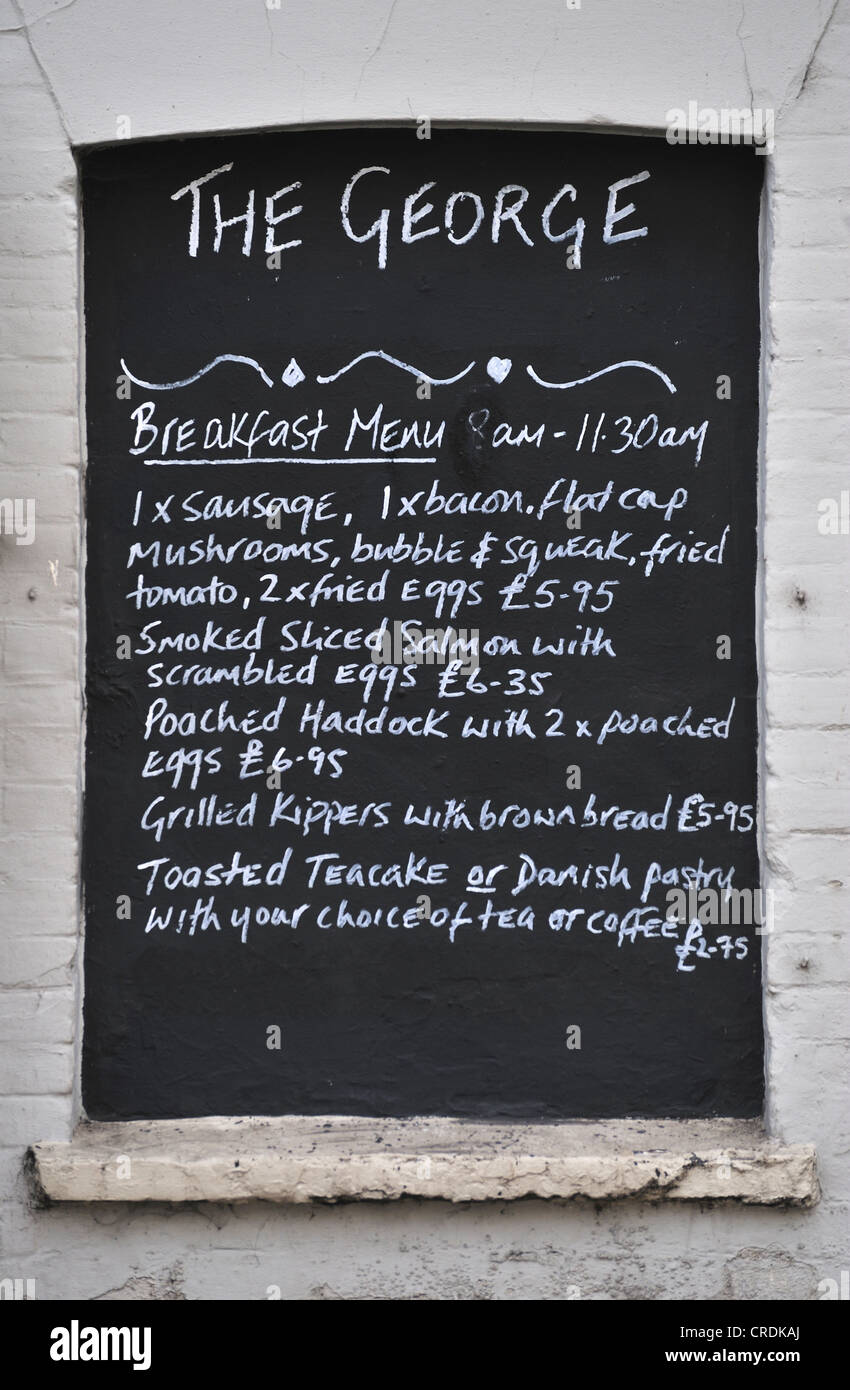 THE GEORGE
Breakfast Menu 8am-11.30am
1 x sausage, 1 x bacon. flat cap
Mushrooms, bubble & squeak, fried
tomato, 2 x fried Eggs £5-95
Smoked Sliced Salmon with
scrambled Eggs £6-35
Poached Haddock with 2 x poached
Eggs £6-95
Grilled Kippers with brown bread £5-95
Toasted Teacake or Danish pastry
with your choice of tea or coffee
£2-75
alamy
Image ID: CRDKAJ
www.alamy.com